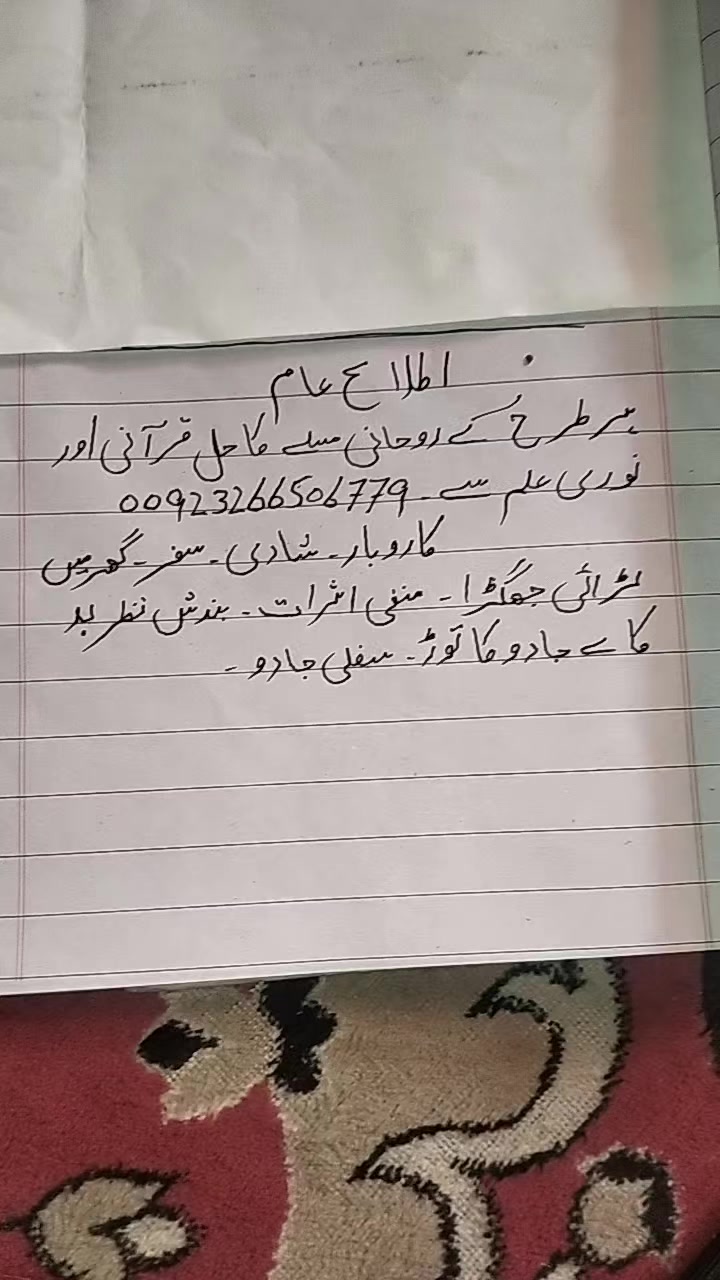 اطلاع عام
ہر طرح کے روحانی مسلے کا حل قرآنی اور
نوری علم سے۔ 00923266506779
کاروبار۔ شادی۔ سفر۔ گھر میں
لڑائی جھگڑا۔ منفی اثرات۔ بندش نظر بد
کالے جادو کا توڑ۔ سفلی جادو۔